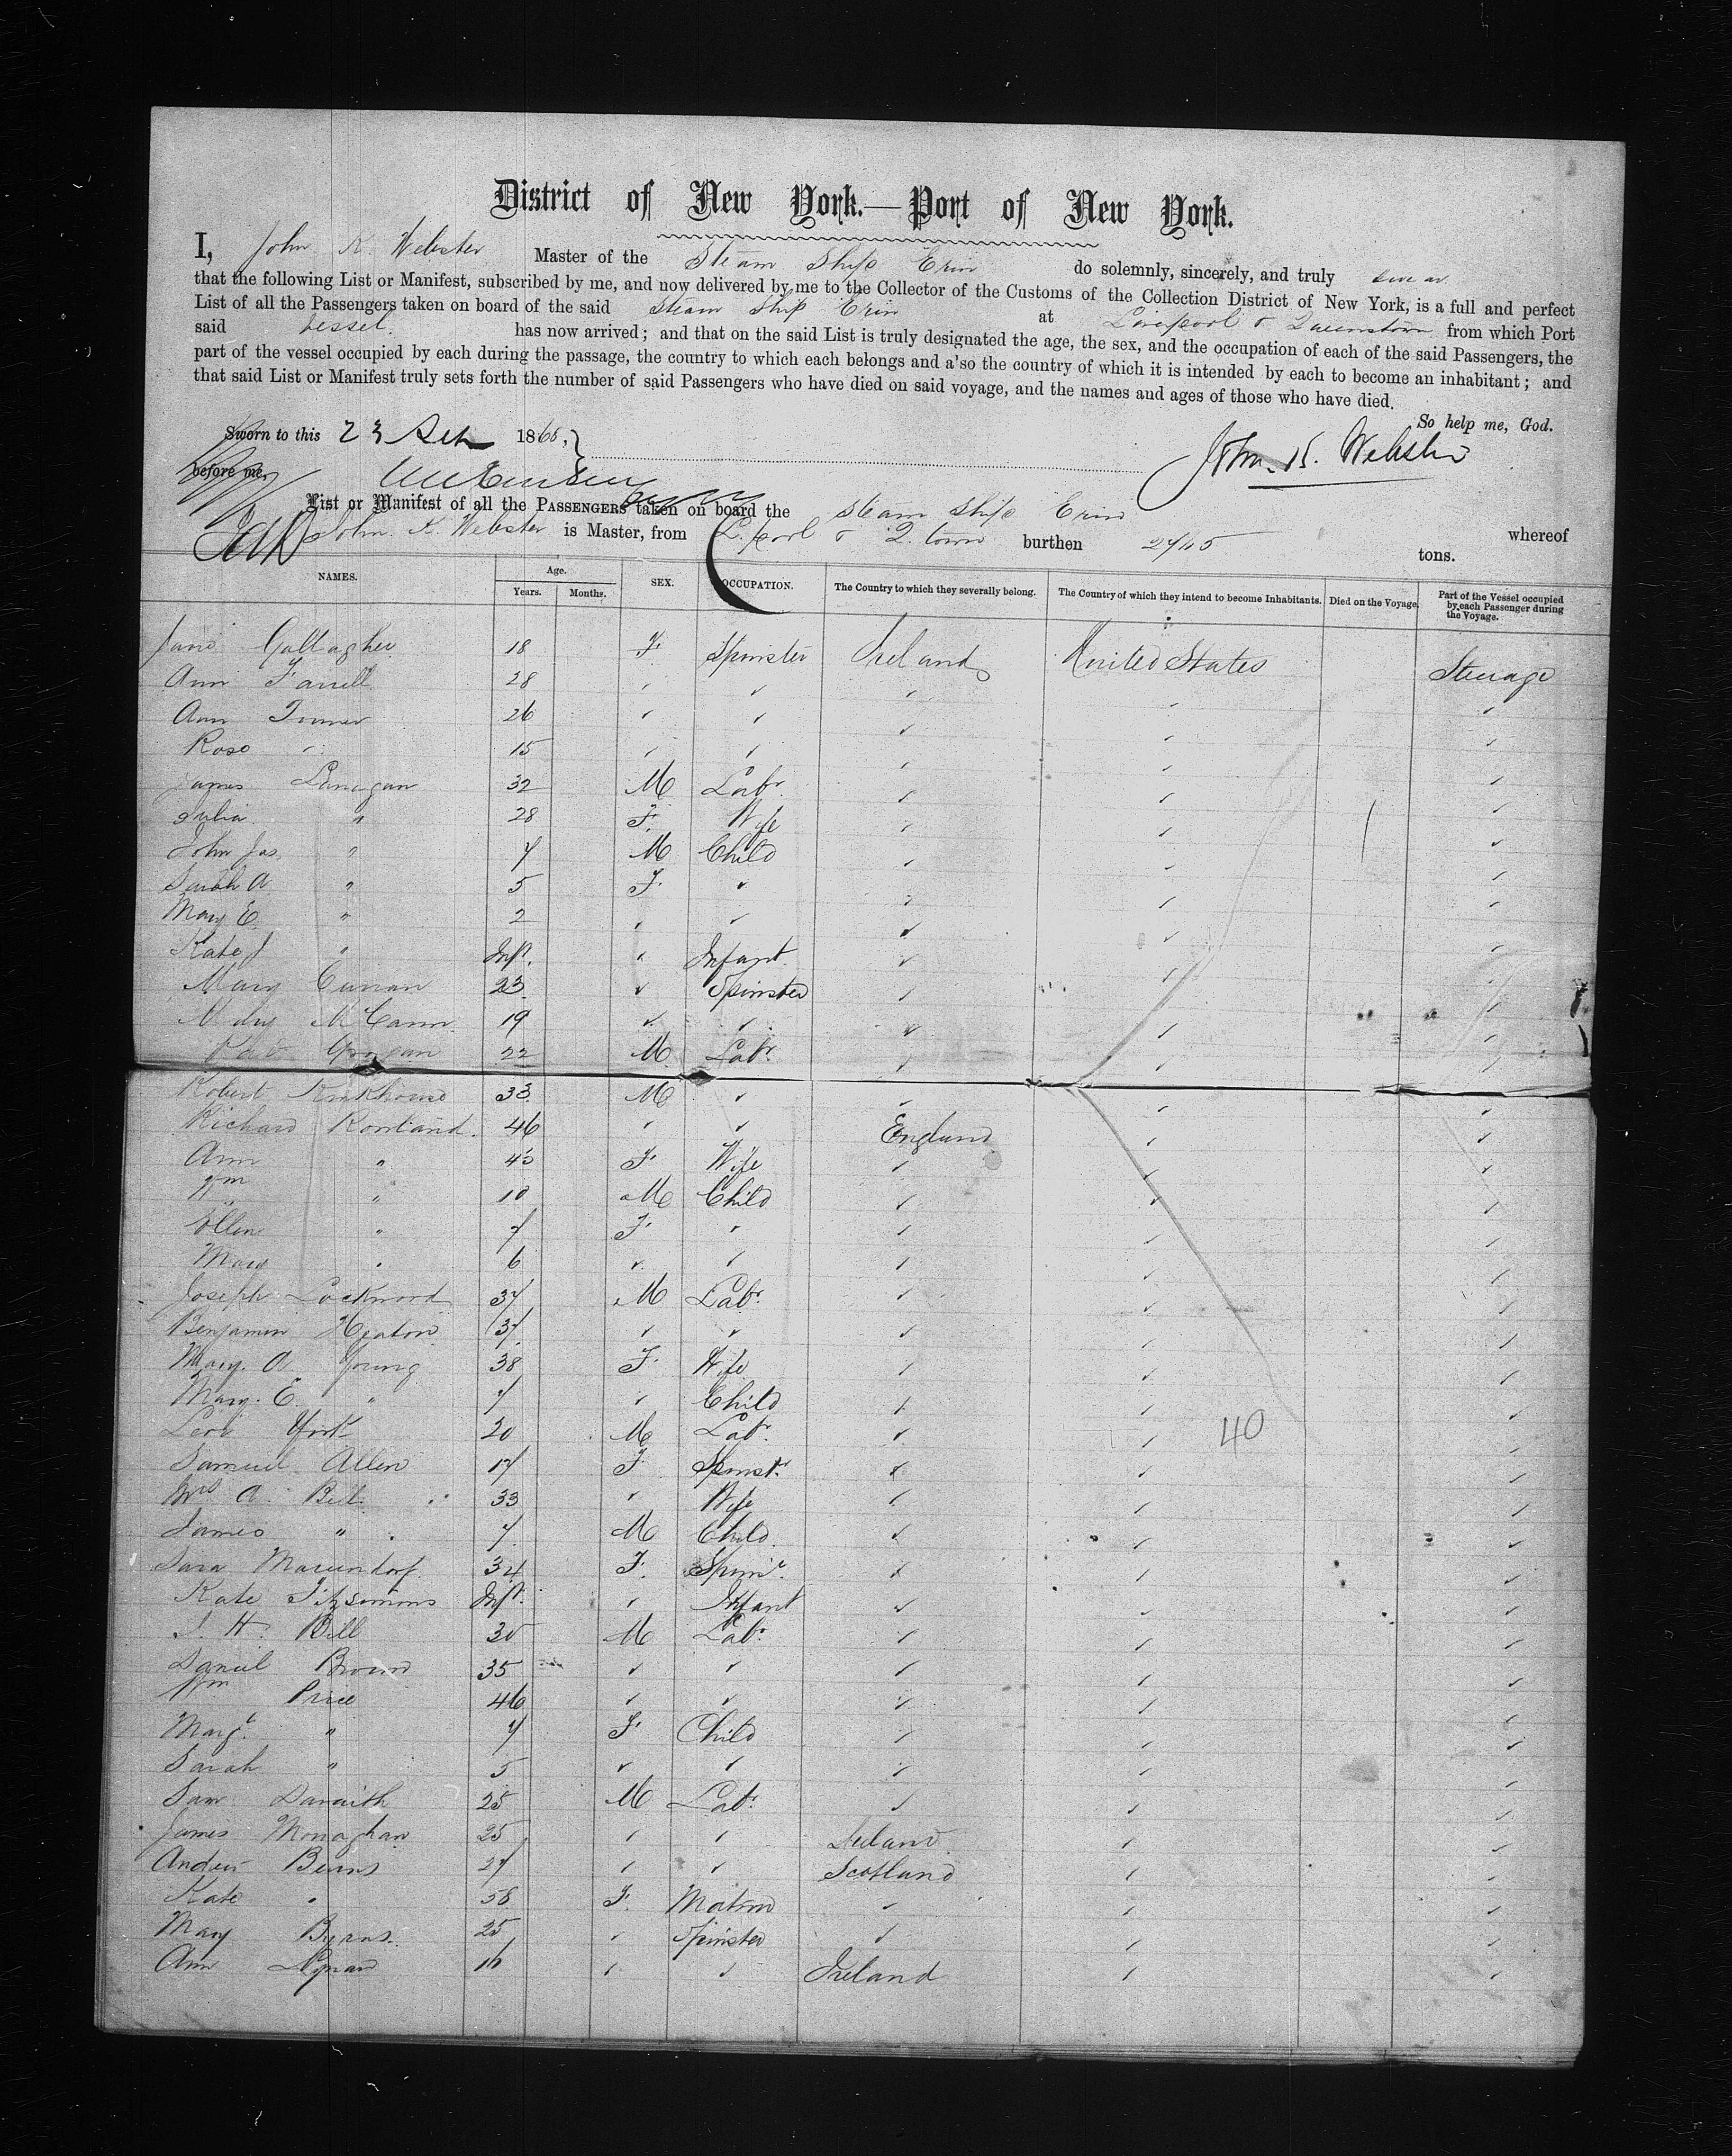 District of New York.—Port of New York.
I, John K. Webster Master of the Steam Ship Erin do solemnly, sincerely, and truly swear
that the following List or Manifest, subscribed by me, and now delivered by me to the Collector of the Customs of the Collection District of New York, is a full and perfect
List of all the Passengers taken on board of the said Steam Ship Erin at Liverpool & Queenstown from which Port
said Vessel. has now arrived; and that on the said List is truly designated the age, the sex, and the occupation of each of the said Passengers, the
part of the vessel occupied by each during the passage, the country to which each belongs and a'so the country of which it is intended by each to become an inhabitant; and
that said List or Manifest truly sets forth the number of said Passengers who have died on said voyage, and the names and ages of those who have died.
So help me, God.
Sworn to this 23 1865, John K. Webster
before me,
List or Manifest of all the PASSENGERS taken on board the Steam Ship Erin whereof
John K. Webster is Master, from L.pool & Q.town burthen tons.
NAMES. Age. Years. Months. SEX. OCCUPATION. The Country to which they severally belong. The Country of which they intend to become Inhabitants. Died on the Voyage. Part of the Vessel occupied by each Passenger during the Voyage.
Jane Gallagher 18 F Spinster Ireland United States Steerage
Ann Farrell 28 ✓ ✓ ✓ ✓ ✓
Ann 26 ✓ ✓ ✓ ✓ ✓
Rose " 15 ✓ ✓ ✓ ✓ ✓
James Lanagan 32 M Labr. ✓ ✓ ✓
Julia " 28 F. Wife ✓ ✓ ✓
John Jas. " 7 M Child ✓ ✓ ✓
Sarah A " 5 F. ✓ ✓ ✓ ✓
Mary E. " 2 ✓ ✓ ✓ ✓ ✓
Kate J " Inft. " Infant ✓ ✓ ✓
Mary Curran 23 ✓ Spinster ✓ ✓ ✓
Mary McCann 19 ✓ ✓ ✓ ✓ ✓
Pat Grogan 22 M Labr. ✓ ✓ ✓
Robert Kirkhouse 33 M ✓ ✓ ✓ ✓
Richard Rowland 46 ✓ ✓ England ✓ ✓
Ann " 45 F Wife ✓ ✓ ✓
Wm " 10 M Child ✓ ✓ ✓
Ellen " 7 F ✓ ✓ ✓ ✓
Mary " 6 ✓ ✓ ✓ ✓ ✓
Joseph Lockwood 37 M Labr. ✓ ✓ ✓
Benjamin Heaton 37 ✓ ✓ ✓ ✓ ✓
Mary A Young 38 F Wife ✓ ✓ ✓
Mary E. " 7 ✓ Child ✓ ✓ ✓
Levi York 20 M Labr. ✓ ✓ 40 ✓
Samuel Allen 17 F Spinstr. ✓ ✓ ✓
Mrs A. 33 ✓ Wife ✓ ✓ ✓
James " 7 M Child ✓ ✓ ✓
Sara 34 F. Spinr. ✓ ✓ ✓
Kate Fitzsimons Inft. ✓ Infant ✓ ✓ ✓
J. H. Bell 30 M Labr. ✓ ✓ ✓
Daniel Brown 35 ✓ ✓ ✓ ✓ ✓
Wm Price 46 ✓ ✓ ✓ ✓ ✓
Margt. " 7 F Child ✓ ✓ ✓
Sarah " 5 ✓ ✓ ✓ ✓ ✓
Sam 25 M Labr. ✓ ✓ ✓
James Monaghan 25 ✓ ✓ Ireland ✓ ✓
Andrew Burns 27 ✓ ✓ Scotland ✓ ✓
Kate " 58 F. Matron ✓ ✓ ✓
Mary Byrns 25 ✓ Spinster ✓ ✓ ✓
Ann 16 ✓ ✓ Ireland ✓ ✓